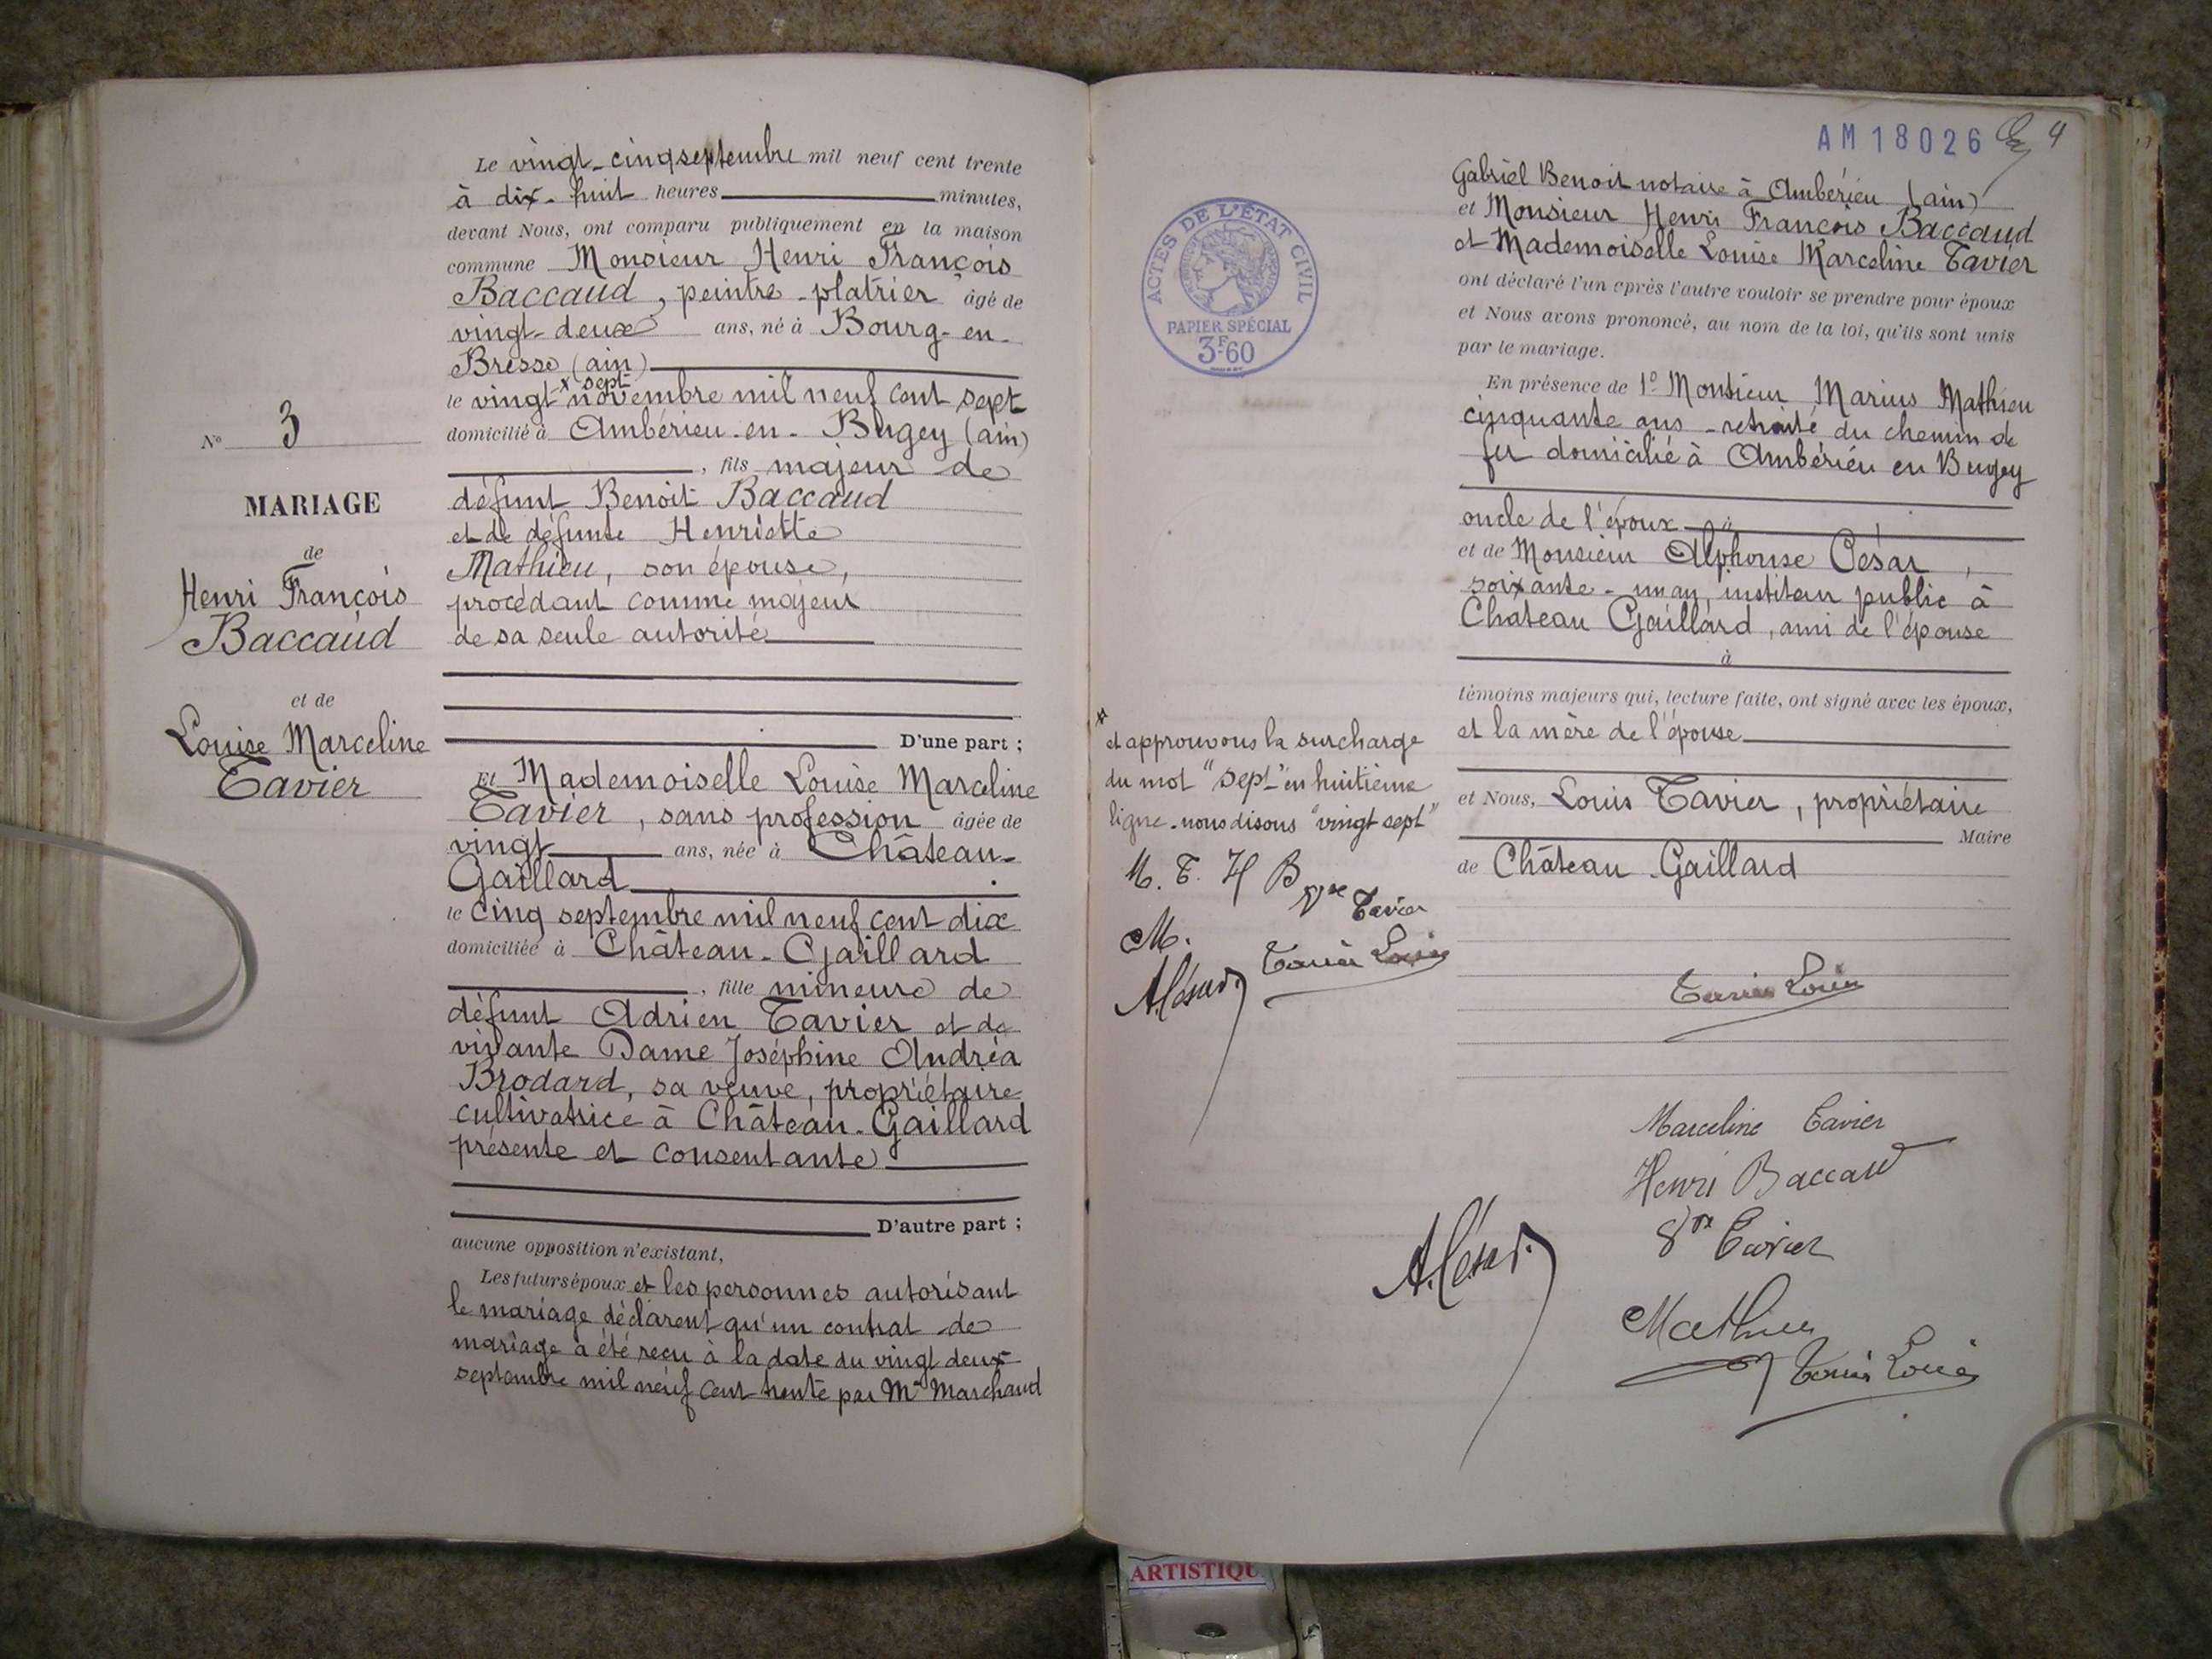 Le vingt-cinq septembre mil neuf cent trente
à dix-huit heures minutes,
devant Nous, ont comparu publiquement en la maison
commune Monsieur Henri François
Baccaud, peintre-platrier âgé de
vingt-deux ans, né à Bourg-en-
Bresse (ain)
x sept
le vingt novembre mil neuf cent sept
domicilié à Ambérieu-en-Bugey (ain)
, fils majeur de
défunt Benoit Baccaud
et de défunte Henriette
Mathieu, son épouse,
procédant comme majeur
de sa seule autorité
D'une part ;
Et Mademoiselle Louise Marceline
Tavier, sans profession âgée de
vingt ans, née à Château-
Gaillard
le cinq septembre mil neuf cent dix
domiciliée à Château-Gaillard
, fille mineure de
défunt Adrien Tavier et de
vivante Dame Joséphine Andréa
Brodard, sa veuve, propriétaire
cultivatrice à Château-Gaillard
présente et consentante
D'autre part ;
aucune opposition n'existant,
Les futurs époux et les personnes autorisant
le mariage déclarent qu'un contrat de
mariage a été reçu à la date du vingt deux
septembre mil neuf cent trente par Me Marchand
N° 3
MARIAGE
de
Henri François
Baccaud
et de
Louise Marceline
Tavier
AM 18026
4
Gabriel Benoit notaire à Ambérieu (ain)
et Monsieur Henri François Baccaud
et Mademoiselle Louise Marceline Tavier
ont déclaré l'un après l'autre vouloir se prendre pour époux
et Nous avons prononcé, au nom de la loi, qu'ils sont unis
par le mariage.
En présence de 1° Monsieur Marius Mathieu
cinquante ans - retraité du chemin de
fer domicilié à Ambérieu en Bugey
oncle de l'époux à
et de Monsieur Alphonse César,
soixante-un an, instituteur public à
Chateau Gaillard, ami de l'épouse
à
témoins majeurs qui, lecture faite, ont signé avec les époux,
et la mère de l'épouse
et Nous, Louis Tavier, propriétaire
Maire
de Château-Gaillard
Tavier Louis
Marceline Tavier
Henri Baccaud
Vve Tavier
A. César
Mathieu
Tavier Louis
ACTES DE L'ÉTAT CIVIL
PAPIER SPÉCIAL
3F60
x
et approuvons la surcharge
du mot "sept" en huitième
ligne - nous disons "vingt sept"
M. T. H B
Vve Tavier
M.
Tavier Louis
A. César
ARTISTIQU